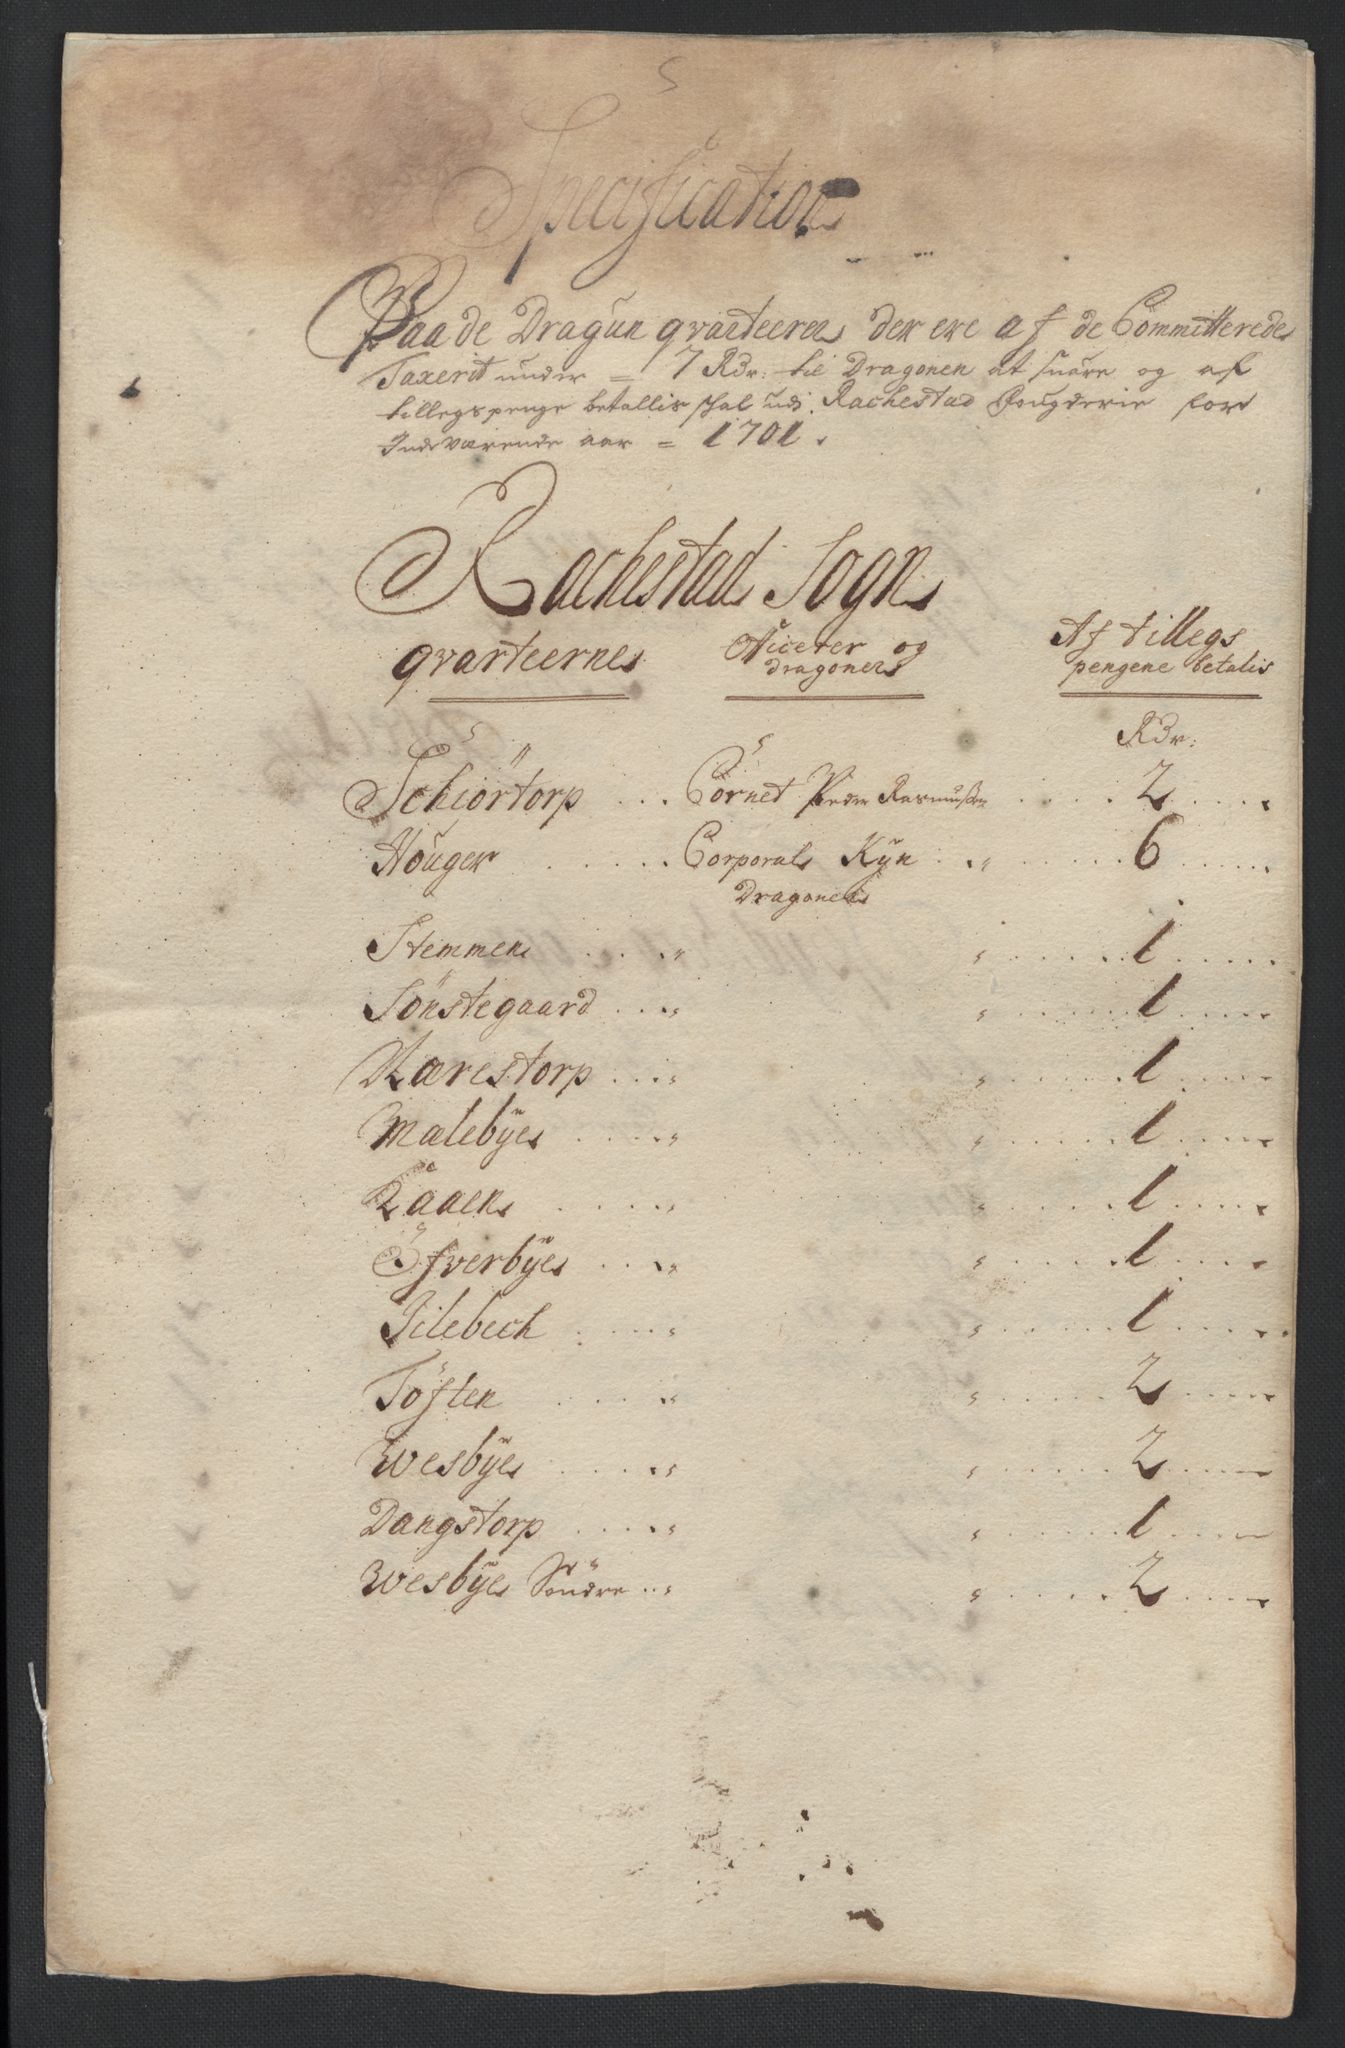 Specification
Paa de Dragun qvarteerer der ere af de Committerede
Taxerit under = 7 Rdr: til Dragonen at suare og af
tillegspenge betallis schal udi Rachestad Fougderie for
Indeværende aar = 1701.
Rachestad Sogn
qvarteerne Officerer og dragoner Af tillegs pengene betalis
Rdr:
Schiörtorp . . . Cornet Peder Rasmussen . . . . 2 . . . .
Houger . . . . . Corporal Kyn . . . . . . 6 . . . .
Dragoner
Stemmen . . . . " " . . . . . 1 . . . .
Sönstegaard . . . " " . . . . . 1 . . . .
Kærestorp . . . " " . . . . . 1 . . . .
Malebye . . . . " " . . . . . 1 . . . .
Raaen . . . . " " . . . . . 1 . . . .
Öfverbye . . . " " . . . . . 1 . . . .
Gilebech . . . . " " . . . . . 1 . . . .
Toften . . . . " " . . . . . 2 . . . .
Wesbye . . . . " " . . . . . 2 . . . .
Dangstorp . . . . " " . . . . . 1 . . . .
Wesbye Söndre . . " " . . . . . 2 . . . .